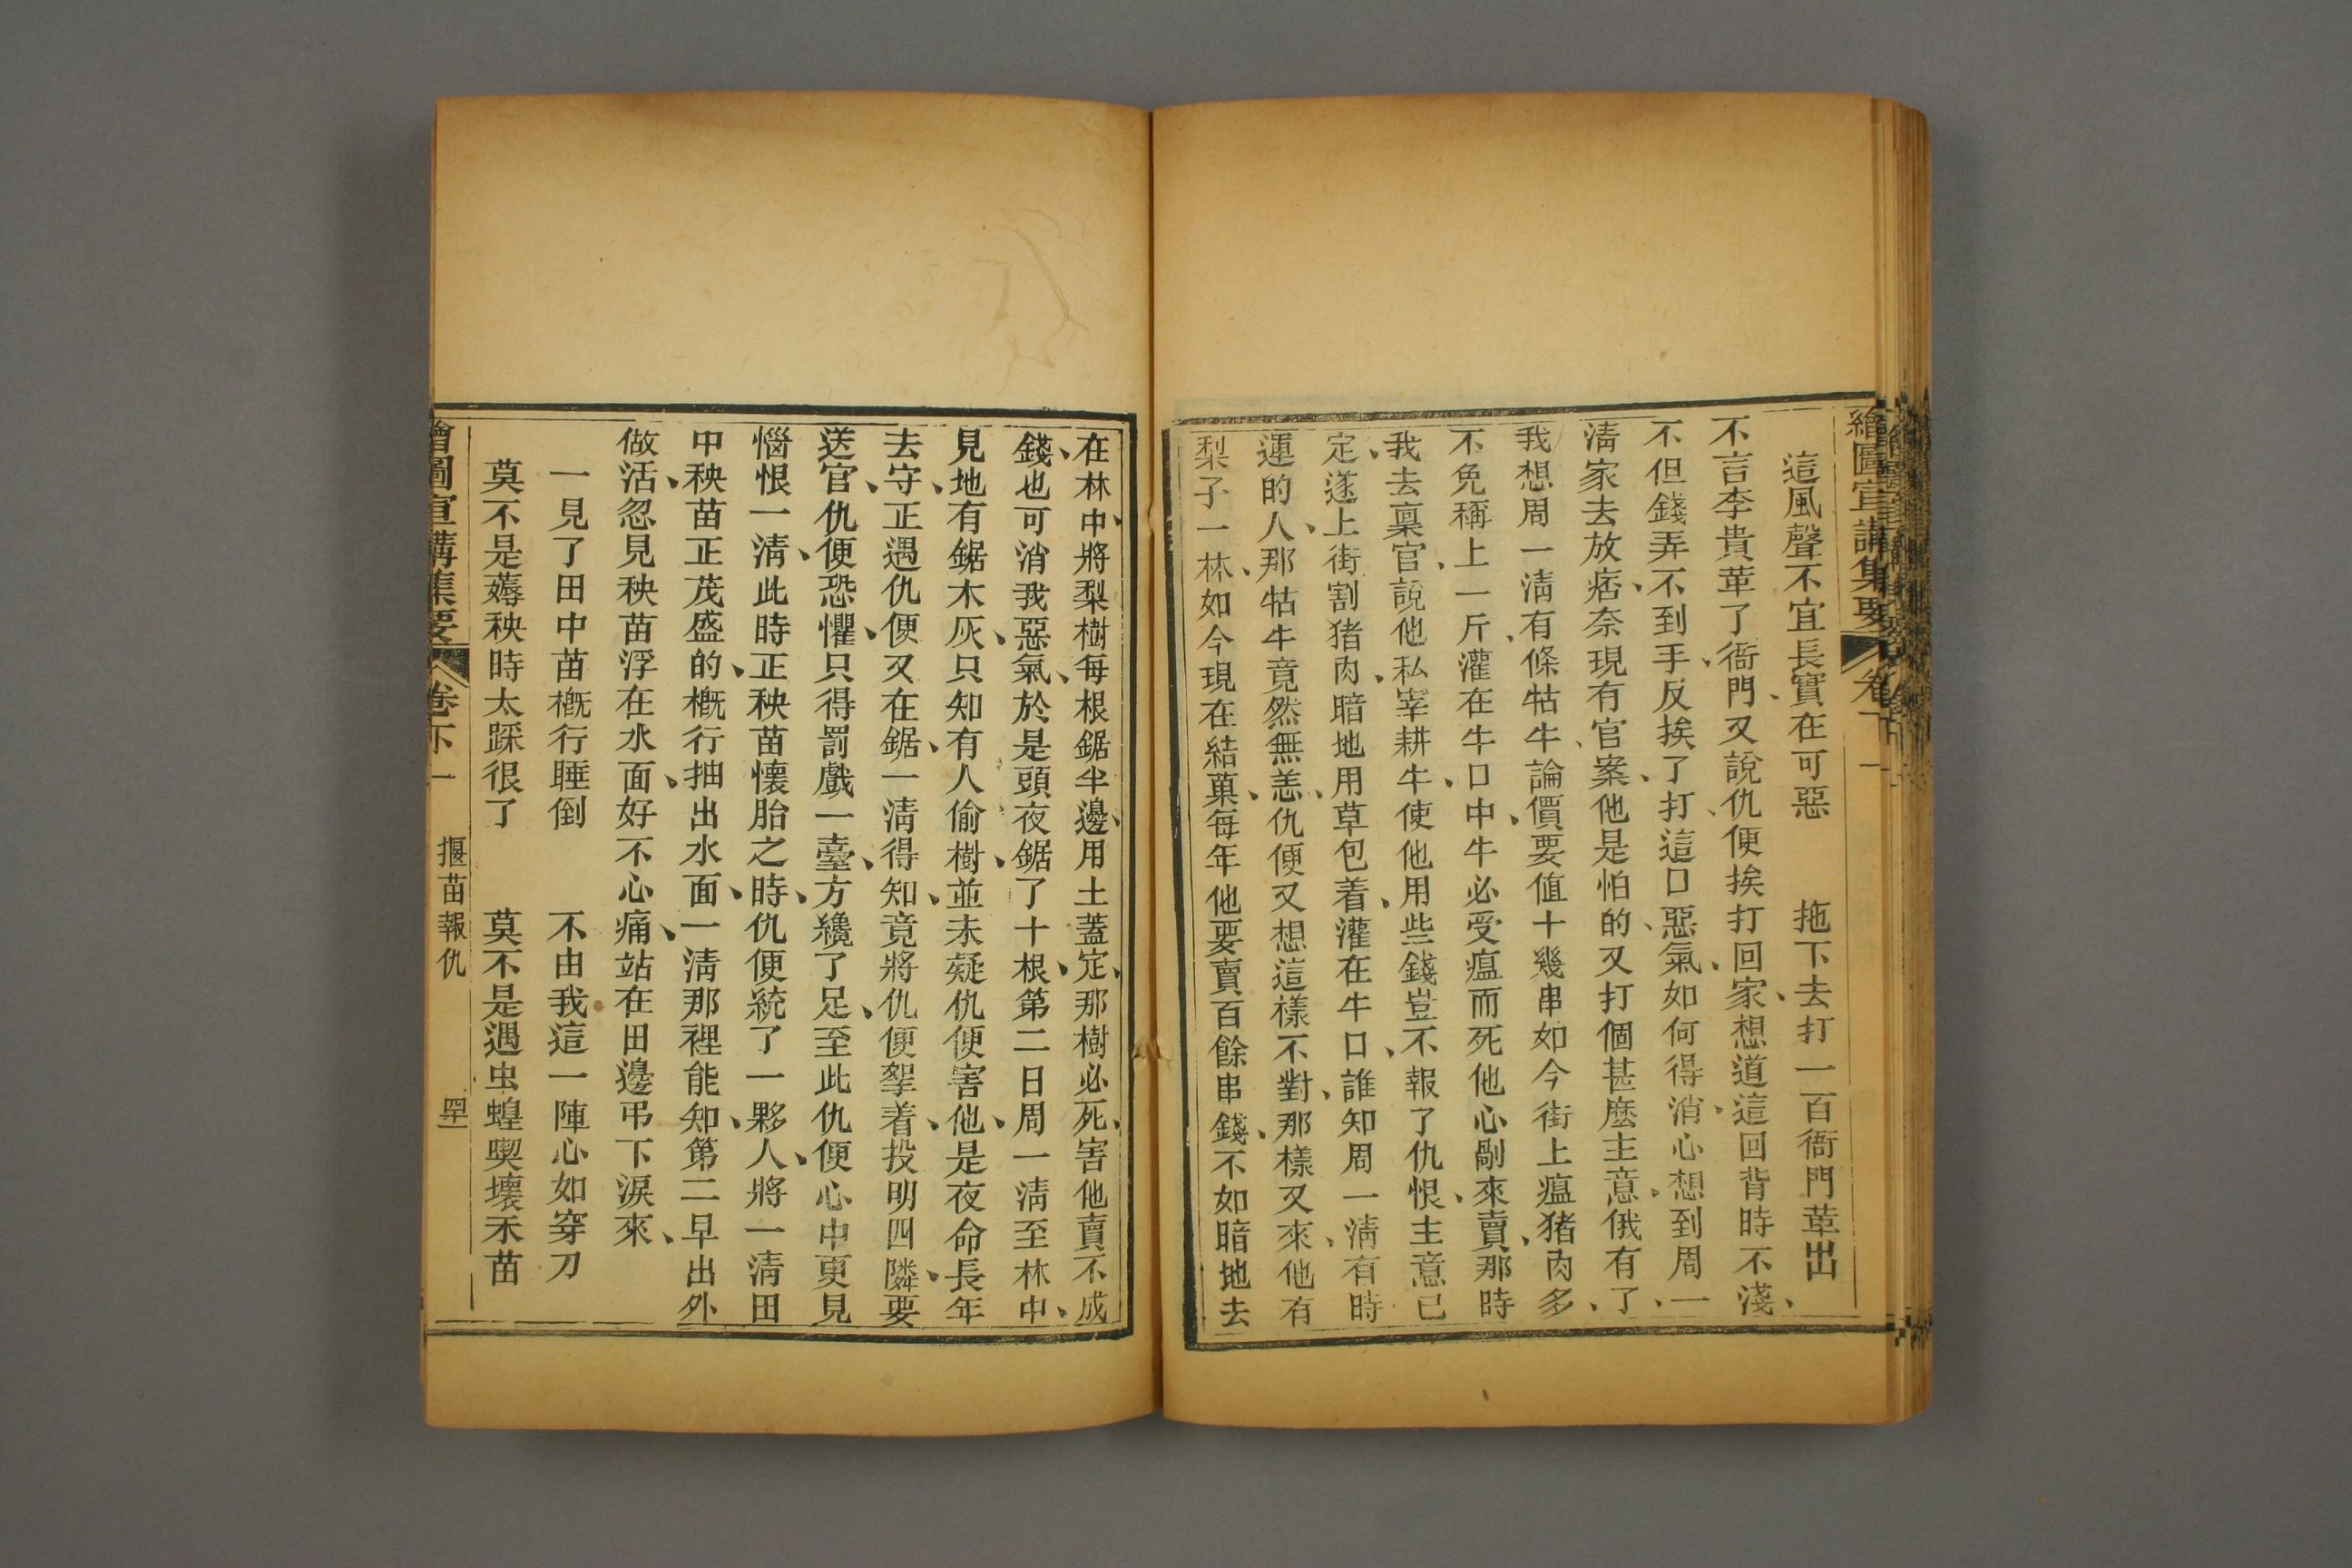 繪圖宣講集要 卷下
這風聲不宜長實在可惡 拖下去打一百衙門革出
不言李貴革了衙門、又說仇便挨打回家、想道這回背時不淺、
不但錢弄不到手、反挨了打、這口惡氣、如何得消、心想到周一
清家去放痞、奈現有官案、他是怕的、又打個甚麼主意、俄有了、
我想周一清有條牯牛、論價要值十幾串如今街上瘟猪肉多、
不免稱上一斤、灌在牛口中、牛必受瘟而死他心剮來賣、那時
我去稟官、說他私宰耕牛、使他用些錢豈不報了仇恨、主意已
定、遂上街割猪肉、暗地用草包着、灌在牛口、誰知周一清有時
運的人、那牯牛竟然無恙、仇便又想這樣不對、那樣又來、他有
梨子一林、如今現在結菓、每年他要賣百餘串錢、不如暗地去
在林中、將梨樹每根鋸半邊、用土蓋定、那樹必死、害他賣不成
錢、也可消我惡氣、於是頭夜鋸了十根、第二日周一清至林中、
見地有鋸木灰、只知有人偷樹、並未疑仇便害他、是夜命長年
去守、正遇仇便又在鋸、一清得知、竟將仇便拏着、投明四隣、要
送官、仇便恐懼、只得罰戲一臺、方纔了足、至此仇便心中更見
惱恨一清、此時正秧苗懷胎之時、仇便統了一夥人、將一清田
中秧苗正茂盛的、概行抽出水面、一清那裡能知、第二早出外
做活、忽見秧苗浮在水面、好不心痛、站在田邊弔下淚來、
一見了田中苗概行睡倒 不由我這一陣心如穿刀
莫不是薅秧時太踩很了 莫不是遇虫蝗喫壞禾苗
繪圖宣講集要 卷下 揠苗報仇 四十一